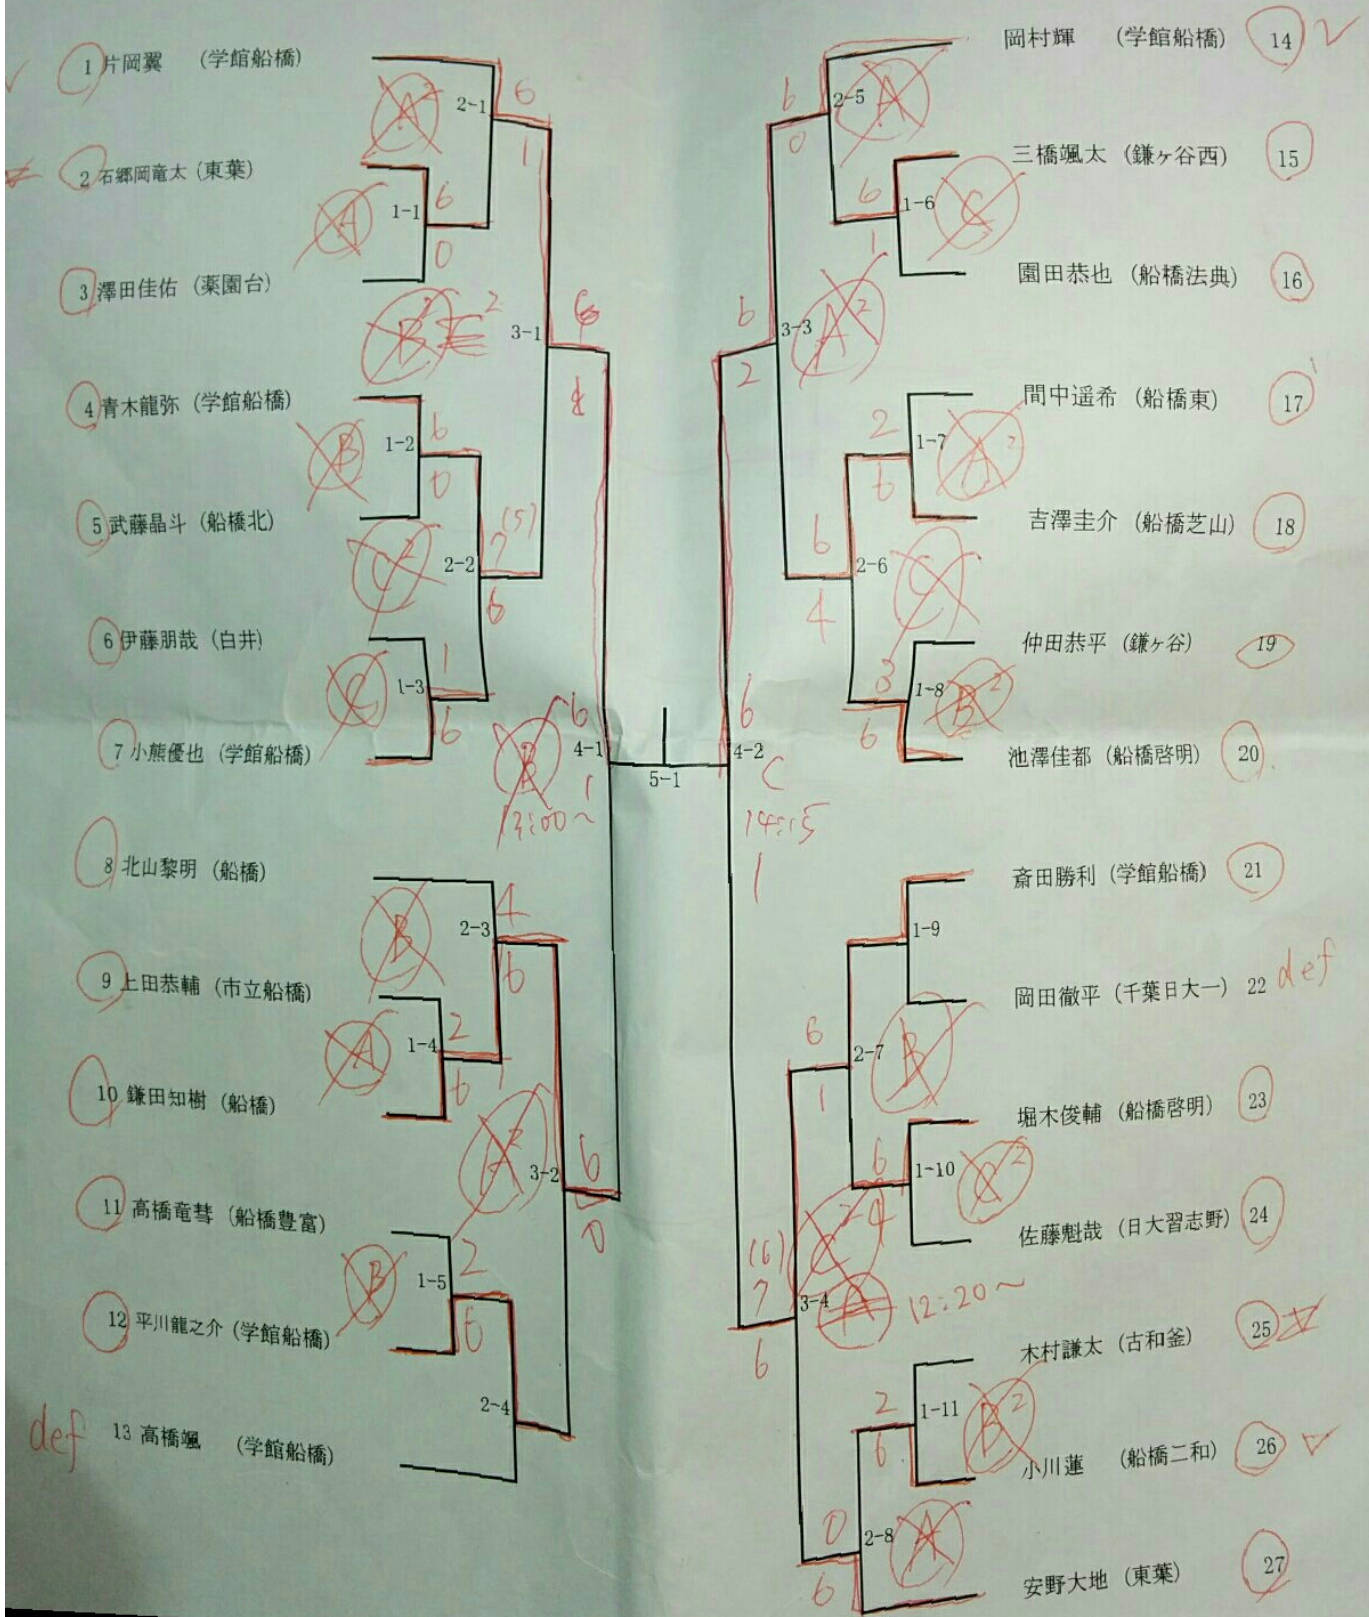 1 片岡翼 (学館船橋)
2 石郷岡竜太 (東葉)
3 澤田佳佑 (薬園台)
4 青木龍弥 (学館船橋)
5 武藤晶斗 (船橋北)
6 伊藤朋哉 (白井)
7 小熊優也 (学館船橋)
8 北山黎明 (船橋)
9 上田恭輔 (市立船橋)
10 鎌田知樹 (船橋)
11 高橋竜彗 (船橋豊富)
12 平川龍之介 (学館船橋)
def 13 高橋颯 (学館船橋)
2-1 A 6 1
1-1 A 6 0
3-1 B
1-2 B 6 0
2-2 C 7 (5) 6
1-3 C 1 6
4-1 B 6 1
2-3 B 4 6
1-4 A 2 6
3-2 A 6 0
1-5 B 2 6
2-4
5-1
岡村輝 (学館船橋) 14
三橋颯太 (鎌ヶ谷西) 15
園田恭也 (船橋法典) 16
間中遥希 (船橋東) 17
吉澤圭介 (船橋芝山) 18
仲田恭平 (鎌ヶ谷) 19
池澤佳都 (船橋啓明) 20
斎田勝利 (学館船橋) 21
岡田徹平 (千葉日大一) 22 def
堀木俊輔 (船橋啓明) 23
佐藤魁哉 (日大習志野) 24
木村謙太 (古和釜) 25
小川蓮 (船橋二和) 26
安野大地 (東葉) 27
6 0 2-5 A
6 1 1-6 C
6 2 3-3 A2
2 6 1-7 A2
6 4 2-6 C
3 6 1-8 B2
6 4-2 C
14:15
1
1-9
6 1 2-7 B
6 4 1-10 C2
(6) 7 6 3-4 C2 A 12:20~
2 6 1-11 B2
0 6 2-8 A